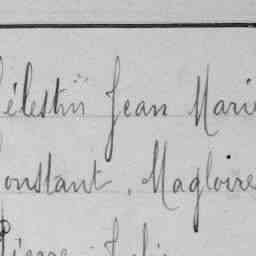 Célestin Jean Marie
Constant, Magloire
Pierre